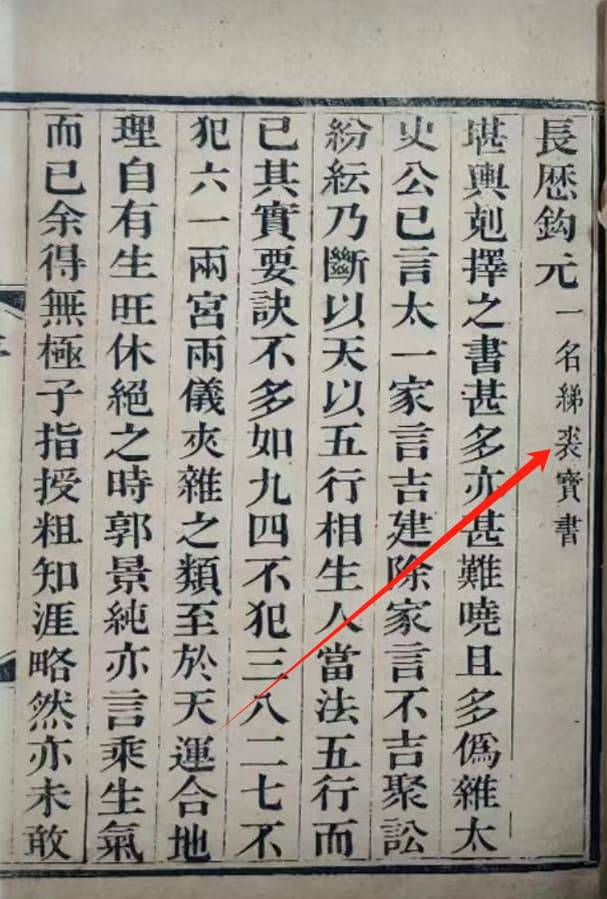 長厯鈎元一名綈袠寶書
堪輿剋擇之書甚多亦甚難曉且多僞雜太
史公已言太一家言吉建除家言不吉聚訟
紛紜乃斷以天以五行相生人當法五行而
已其實要訣不多如九四不犯三八二七不
犯六一兩宮兩儀夾雜之類至於天運合地
理自有生旺休絕之時郭景純亦言乘生氣
而已余得無極子指授粗知涯略然亦未敢